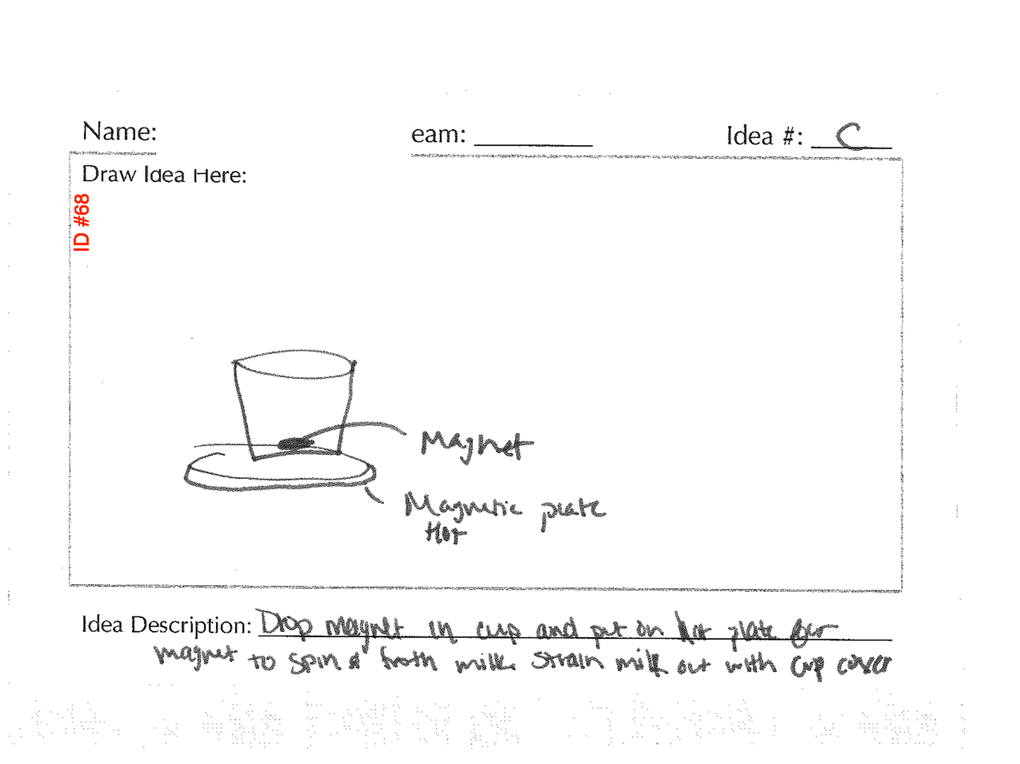 Name:
eam:
Idea #: C
Draw Idea Here:
ID #68
Magnet
Magnetic plate
Hot
Idea Description: Drop magnet in cup and put on hot plate for
magnet to spin & froth milk. Strain milk out with cup cover